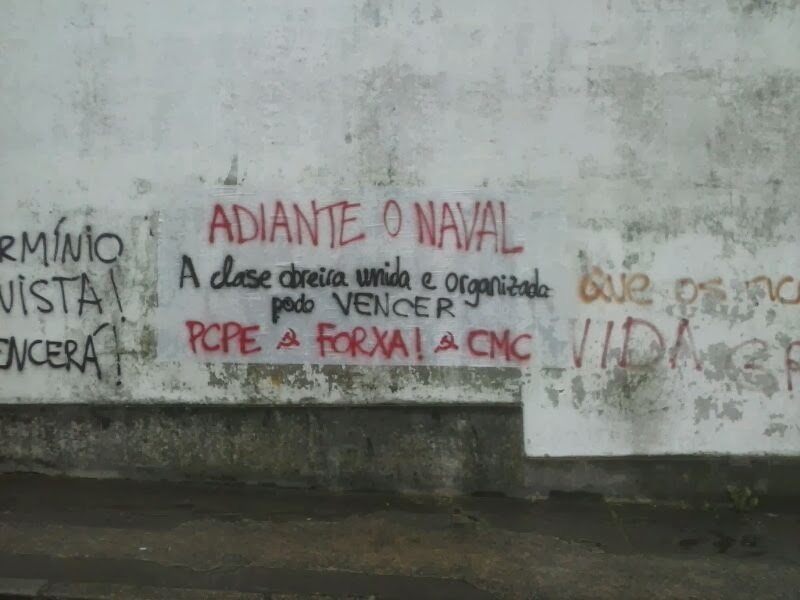 RMÍNIO
VISTA!
ENCERÁ!
ADIANTE O NAVAL
A clase obreira unida e organizada
pode VENCER
PCPE ☭ FORXA! ☭ CMC
QUE OS
VIDA